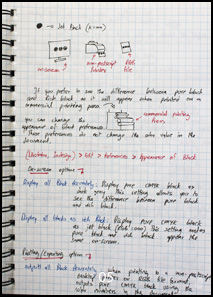 ● → Jet Black (
on-screen
non-postscript
printers
RGB
file
If you prefer to see the difference between pure black
and rich black as it will appear when printed on a
commercial printing press
commercial printing
Press
you can change the
appearance of black preferences
These preferences do not change the value in the
document.
[Illustrator, InDesign] > Edit > Preferences > Appearance of Black
On-screen options
Display all black Accurately: Displays pure CMYK black as
dark gray. This setting allows you to
see the difference between pure black
and rich black
Display all blacks as rich Black: Displays pure CMYK black
as jet black (RGB
pure black and rich black appear the
same on-screen.
Printing / Exporting options
outputs all Black Accurately
When printing to a non-postscript
desktop printer or RGB file format,
outputs pure CMYK black using the